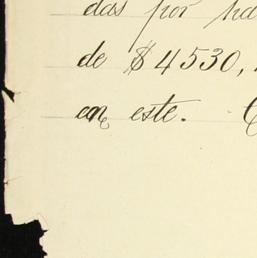 das por ha
de $4530,
en este.